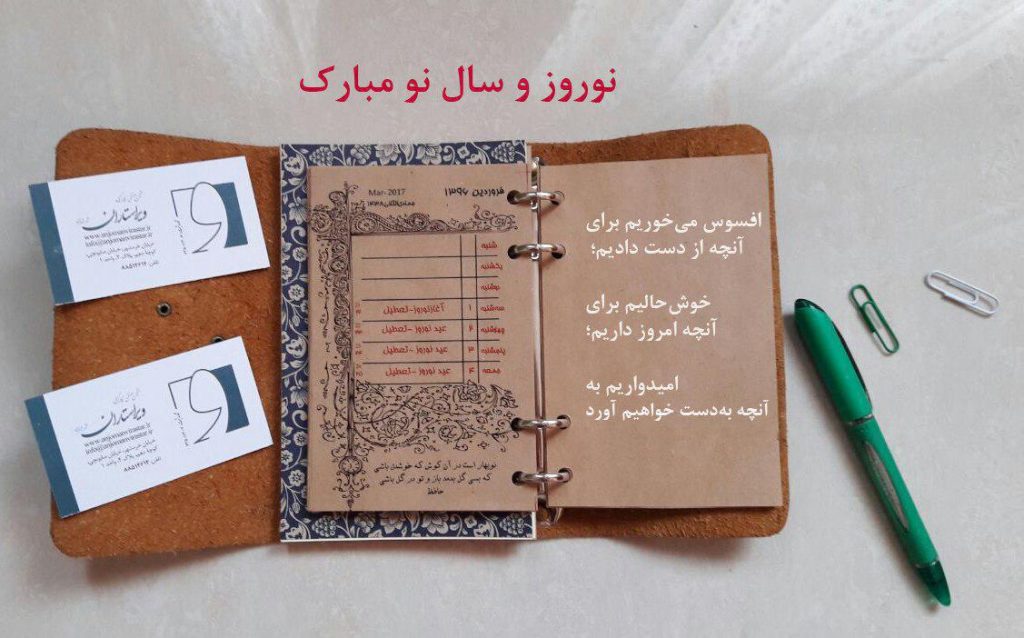 نوروز و سال نو مبارک
افسوس می‌خوریم برای
آنچه از دست دادیم؛
خوش‌حالیم برای
آنچه امروز داریم؛
امیدواریم به
آنچه به‌دست خواهیم آورد
فروردین ۱۳۹۶
Mar-2017
شنبه
یکشنبه
دوشنبه
سه‌شنبه ۱ آغاز نوروز-تعطیل
چهارشنبه ۲ عید نوروز-تعطیل
پنجشنبه ۳ عید نوروز-تعطیل
جمعه ۴ عید نوروز-تعطیل
نوبهار است در آن کوش که خوشدل باشی
که بسی گل بدمد باز و تو در گل باشی
حافظ
ویراستاران
www.anjomanvirastar.ir
info@anjomanvirastar.ir
تلفن: ۸۸۵۱۴۶۱۴
ویراستاران
www.anjomanvirastar.ir
info@anjomanvirastar.ir
تلفن: ۸۸۵۱۴۶۱۴